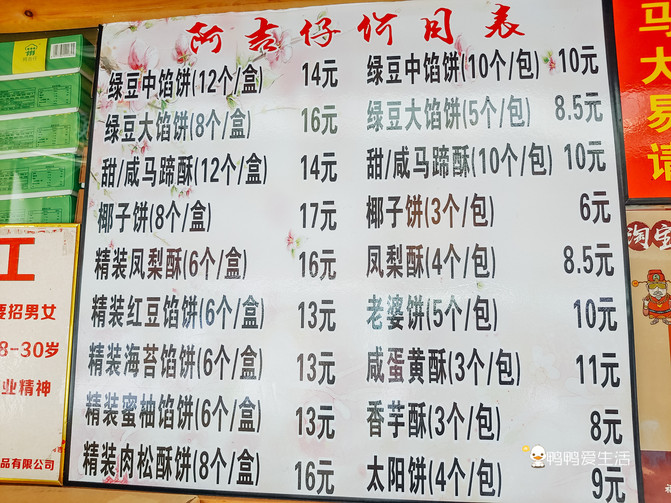 阿吉仔价目表
绿豆中馅饼(12个/盒) 14元 绿豆中馅饼(10个/包) 10元
绿豆大馅饼(8个/盒) 16元 绿豆大馅饼(5个/包) 8.5元
甜/咸马蹄酥(12个/盒) 14元 甜/咸马蹄酥(10个/包) 10元
椰子饼(8个/盒) 17元 椰子饼(3个/包) 6元
精装凤梨酥(6个/盒) 16元 凤梨酥(4个/包) 8.5元
精装红豆馅饼(6个/盒) 13元 老婆饼(5个/包) 10元
精装海苔馅饼(6个/盒) 13元 咸蛋黄酥(3个/包) 11元
精装蜜柚馅饼(6个/盒) 13元 香芋酥(3个/包) 8元
精装肉松酥饼(8个/盒) 16元 太阳饼(4个/包) 9元
工
要招男女
8-30岁
业精神
品有限公司
马大
易
请
淘宝
鸭鸭爱生活